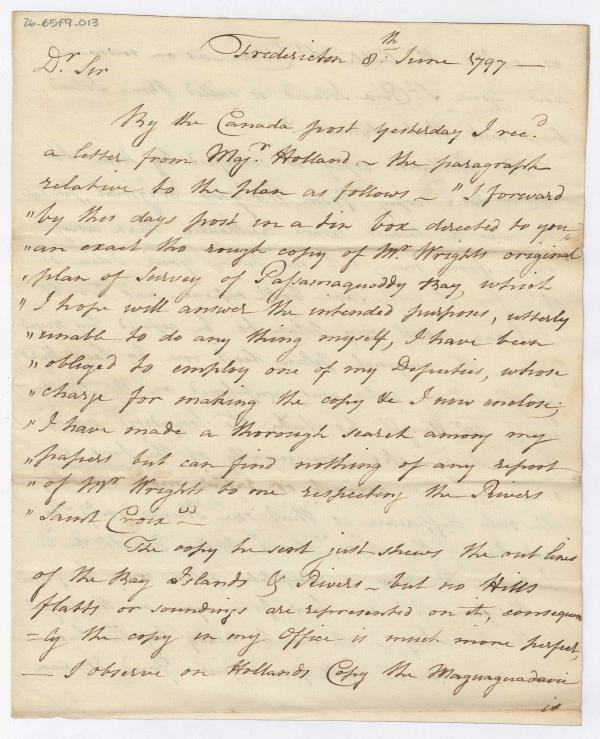 26-B5F9.013
Fredericton 8th. June 1797 —
Dr. Sir
By the Canada post yesterday I rec.d
a letter from Majr. Holland ~ the paragraph
relative to the plan as follows ~ "I forward
" by this days post in a tin box directed to you
" an exact tho rough copy of Mr Wrights original
" plan of Survey of Passamaquoddy Bay, which
" I hope will answer the intended purposes, utterly
" unable to do any thing myself, I have been
" obliged to employ one of my Deputies, whose
" charge for making the copy &c I now enclose;
" I have made a thorough search among my
" papers but can find nothing of any report
" of Mr Wrights to me respecting the Rivers
" Saint Croix" —
The copy he sent just shews the out lines
of the Bay Islands & Rivers ~ but no Hills
flatts or soundings are represented on it, consequen
=ly the copy in my Office is much more perfect,
— I observe on Hollands Copy the Maguaguadavic
is